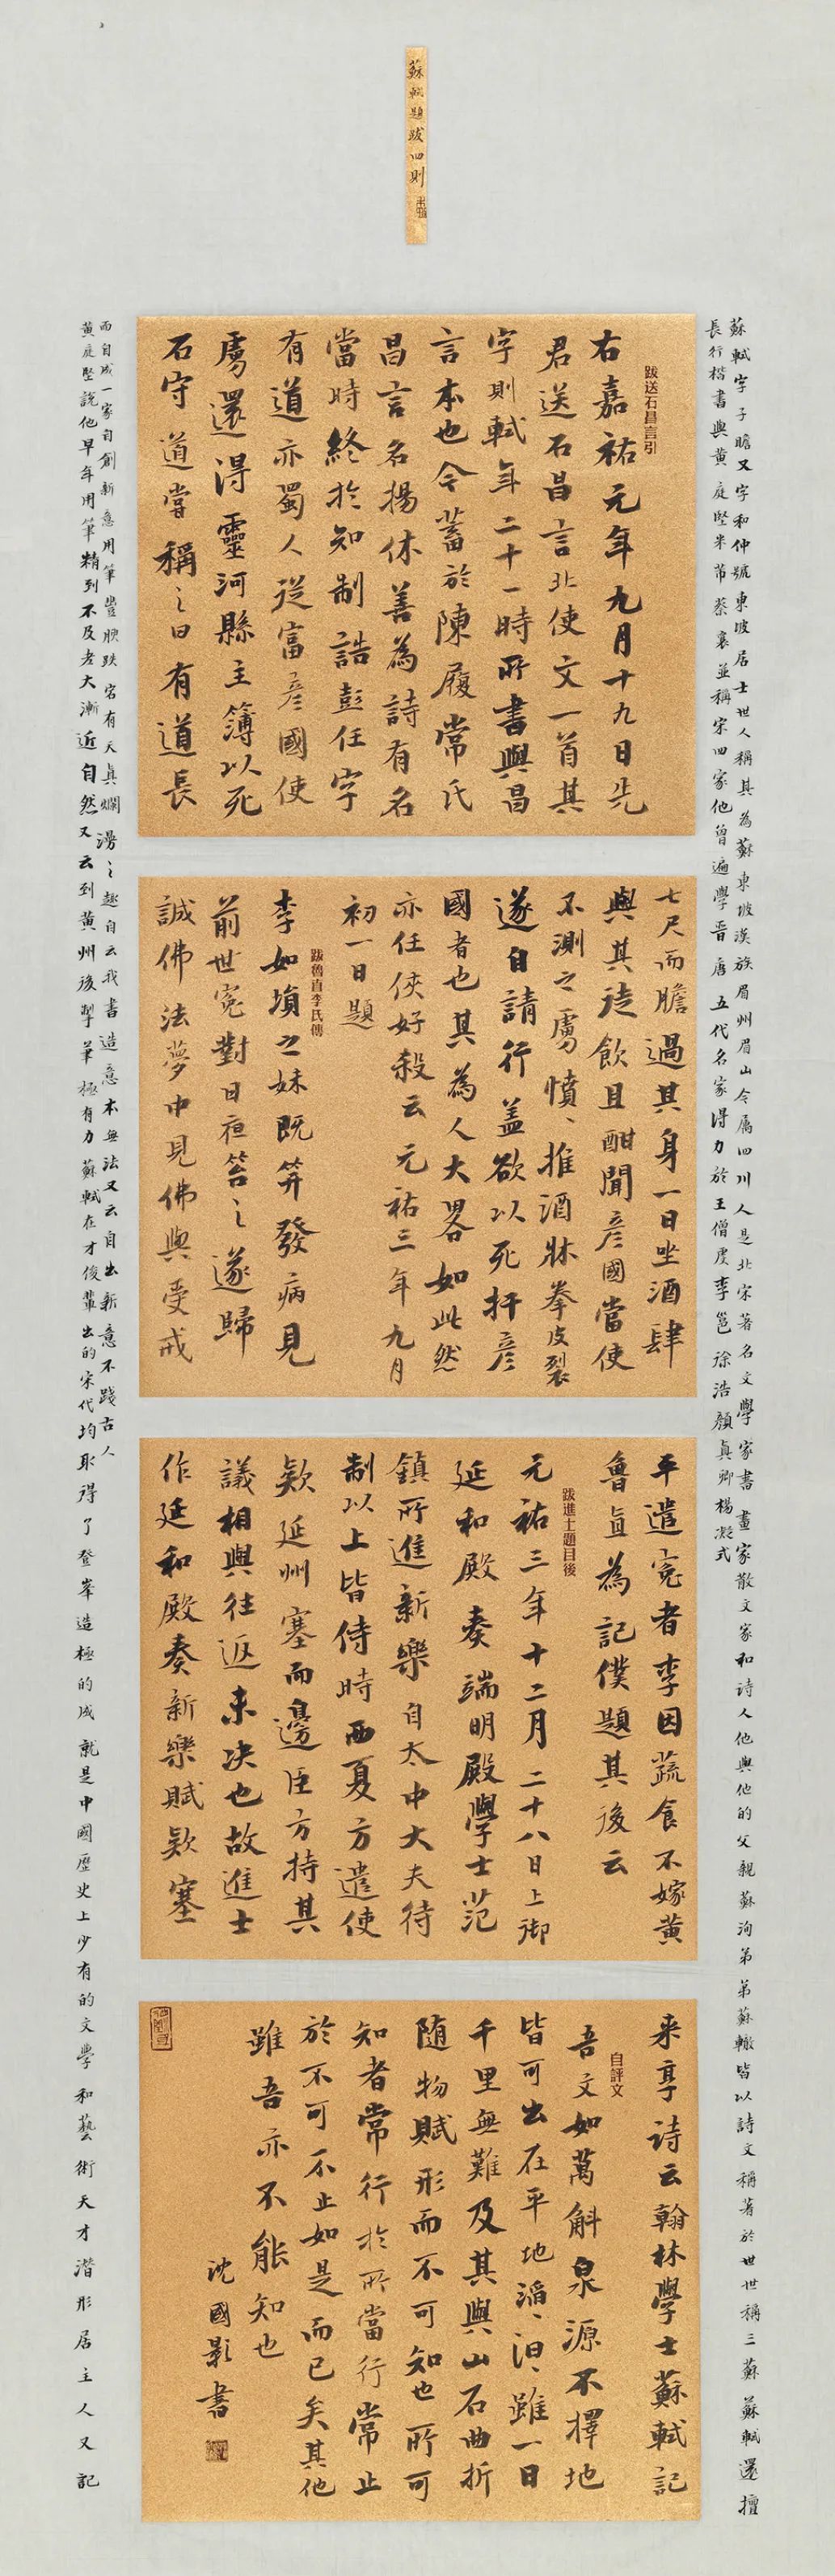 蘇軾題跋四則
蘇軾字子瞻又字和仲號東坡居士世人稱其為蘇東坡漢族眉州眉山今屬四川人是北宋著名文學家書畫家散文家和詩人他與他的父親蘇洵弟弟蘇轍皆以詩文稱著於世世稱三蘇蘇軾還擅
長行楷書與黄庭堅米芾蔡襄並稱宋四家他曾遍學晉唐五代名家得力於王僧虔李邕徐浩顏真卿楊凝式
跋送石昌言引
右嘉祐元年九月十九日先
君送石昌言北使文一首其
字則軾年二十一時所書與昌
言本也今蓄於陳履常氏
昌言名揚休善為詩有名
當時終於知制誥彭任字
有道亦蜀人從富彥國使
虜還得靈河縣主簿以死
石守道嘗稱之曰有道長
七尺而膽過其身一日坐酒肆
與其徒飲且酣聞彥國當使
不測之虜憤憤推酒牀拳皮裂
遂自請行蓋欲以死扞彥
國者也其為人大畧如此然
亦任俠好殺云元祐三年九月
初一日題
跋魯直李氏傳
李如塤之妹既笄發病見
前世冤對日夜笞之遂歸
誠佛法夢中見佛與受戒
平遣冤者李因蔬食不嫁黄
魯直為記僕題其後云
跋進士題目後
元祐三年十二月二十八日上御
延和殿奏端明殿學士范
鎮所進新樂自太中大夫待
制以上皆侍時西夏方遣使
欵延州塞而邊臣方持其
議相與往返未决也故進士
作延和殿奏新樂賦欵塞
来享詩云翰林學士蘇軾記
自評文
吾文如萬斛泉源不擇地
皆可出在平地滔滔汩汩雖一日
千里無難及其與山石曲折
随物賦形而不可知也所可
知者常行於所當行常止
於不可不止如是而已矣其他
雖吾亦不能知也
沈國影書
而自成一家自創新意用筆豐腴跌宕有天真爛漫之趣自云我書造意本無法又云自出新意不踐古人
黄庭堅說他早年用筆精到不及老大漸近自然又云到黄州後掣筆極有力蘇軾在才俊輩出的宋代均取得了登峯造極的成就是中國歷史上少有的文學和藝術天才潜形居主人又記